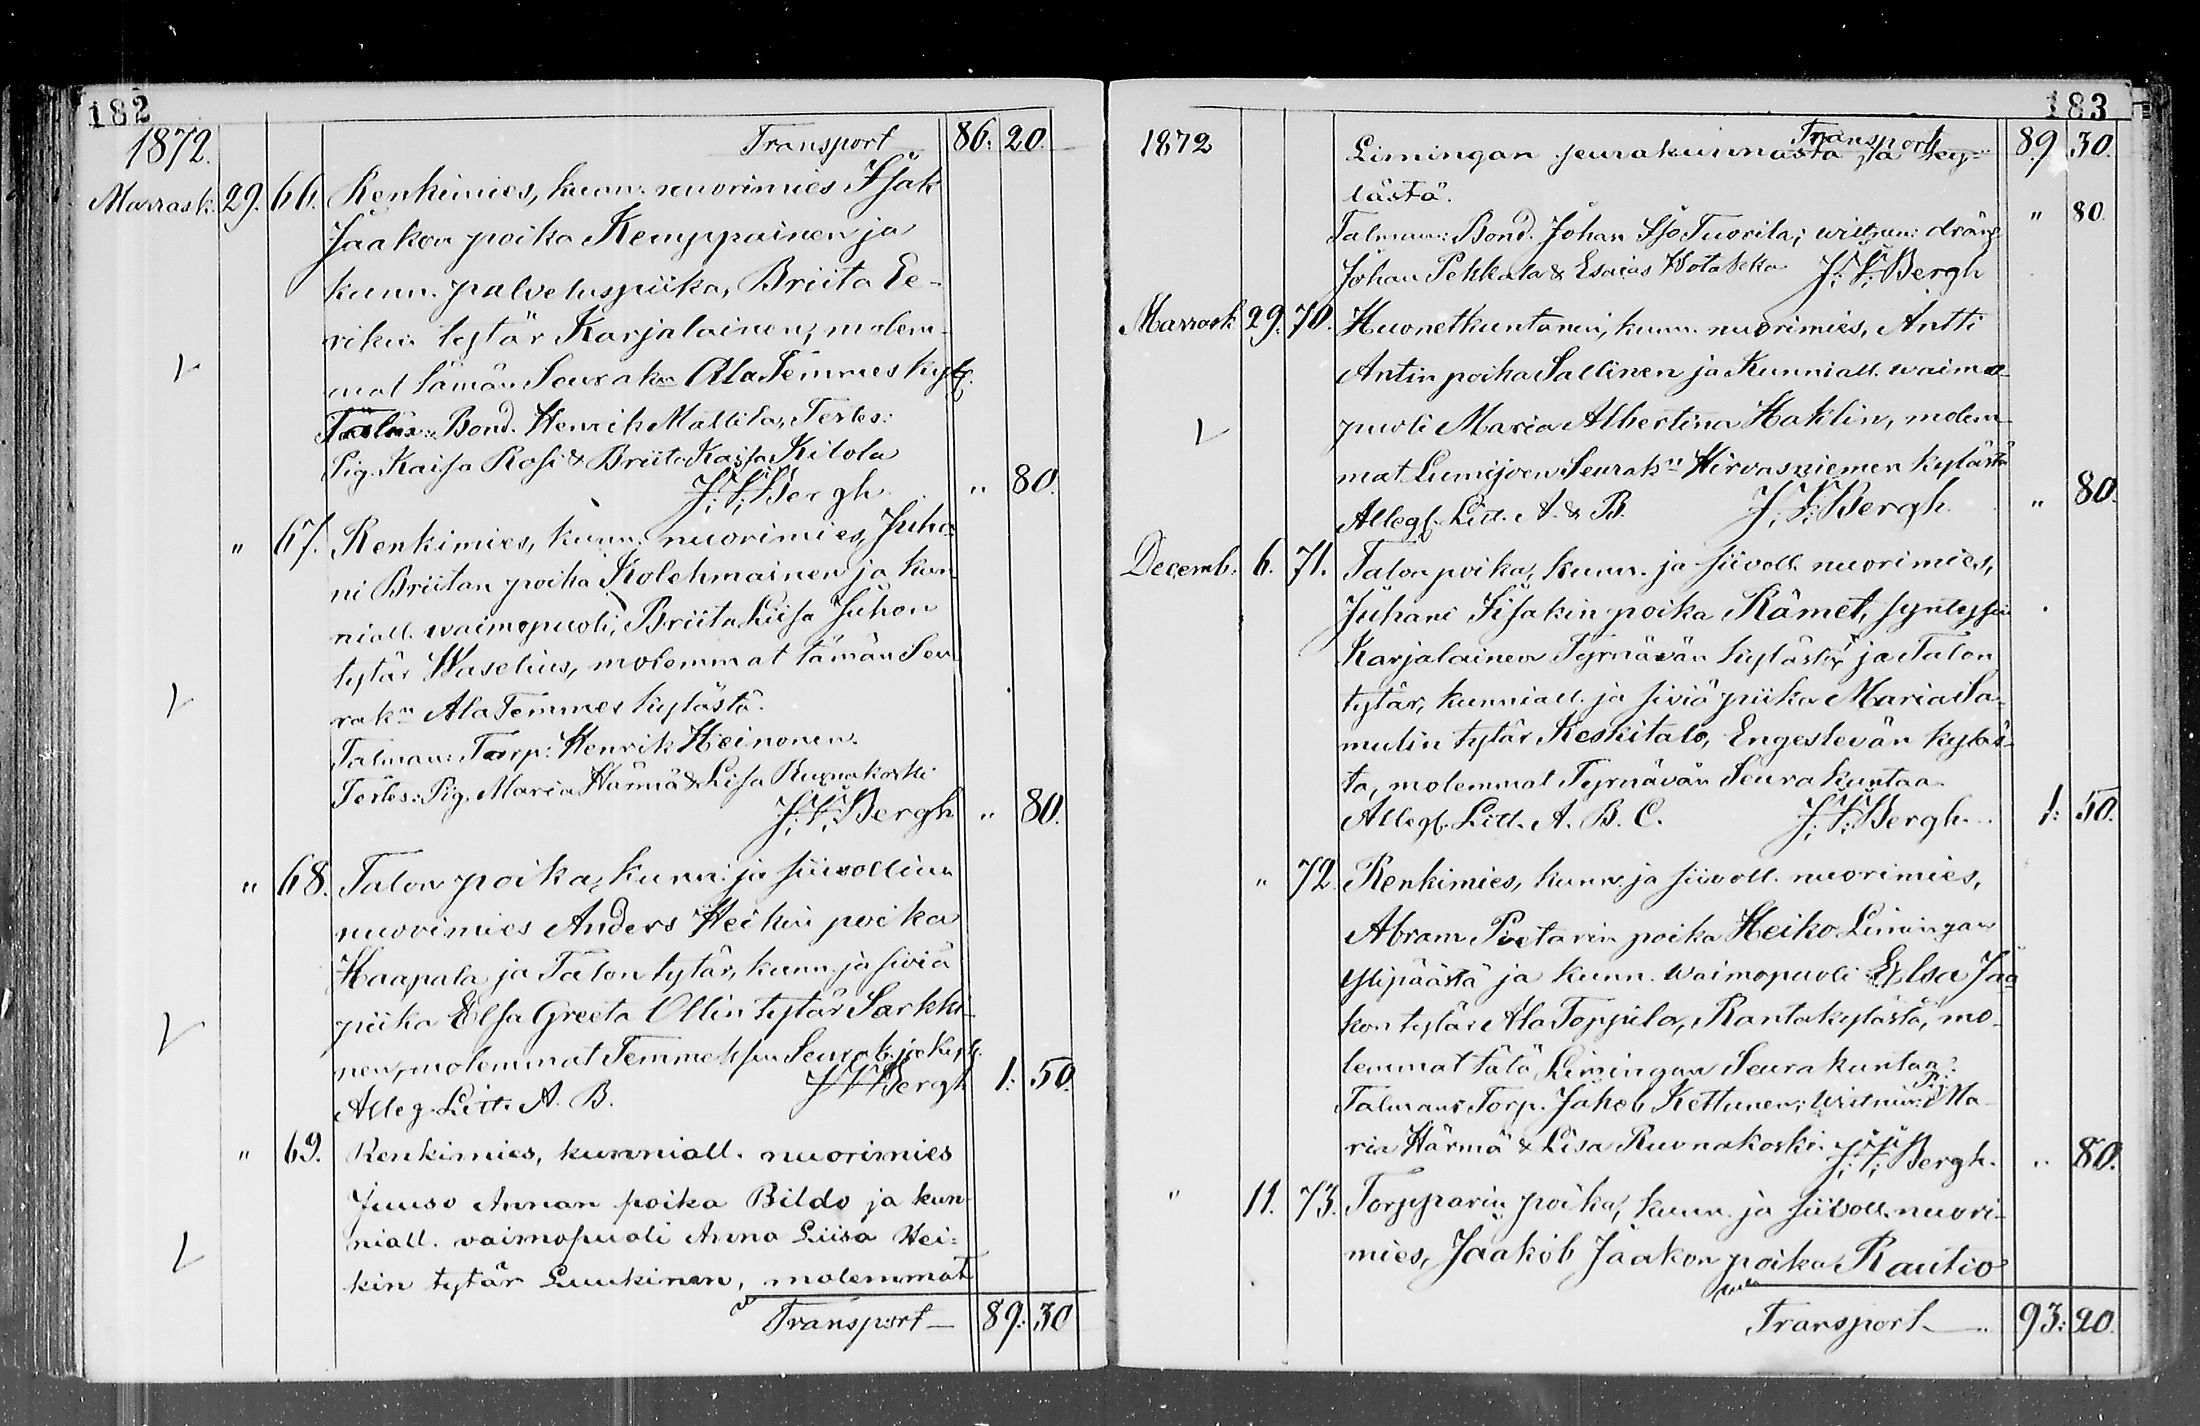 182
1872. Transport 86: 20.
Marrask. 29. 66. Renkimies, kunn. nuorimies Isak
Jaakon poika Kemppainen ja
kunn. palveluspiika, Briita Ee-
rikin tytär Karjalainen, molem-
mat tämän Seurakn Ala Temmes kyl.
Talm: Bond. Henrik Mattila, Testes:
Pig. Kaisa Rosi & Briita Kaisa Kitola
J. V. Bergh " 80.
" 67. Renkimies, kunn. nuorimies, Juha-
ni Briitan poika Kolehmainen ja kun-
niall. waimopuoli, Briita Liisa Juhon
tytär Waselius, molemmat tämän Seu-
rakn Ala Temmes kylästä.
Talman: Torp: Henrik Heinonen.
Testes: Pig. Maria Härmä & Lisa Ruonakoski
J. V. Bergh " 80.
" 68. Talon poika, kunn: ja siivollinen
nuorimies Anders Heikin poika
Haapala ja Talon tytär, kunn. ja siviä
piika Elsa Greeta Ollin tytär Sarkki-
nen, molemmat Temmeksen Seurak. ja kyl.
Alleg. Litt. A. B. J. V. Bergh 1: 50.
" 69. Renkimies, kunniall. nuorimies
Juuso Annan poika Bildo ja kun-
niall. vaimopuoli Anna Liisa Hei-
kin tytär Luukinen, molemmat
Transport 89: 30
183
1872 Transport 89. 30.
Limingan seurakunnasta ja ky-
lästä.
Talman: Bond. Johan Iso Tuorila; wittnen: dräng " 80.
Johan Pekkala & Esaias Hotakka J. V. Bergh
Marrask. 29. 70. Huonetkuntanen, kunn. nuorimies, Antti
Antin poika Sallinen ja Kunniall. waimo-
puoli Maria Albertina Haklin, molem-
mat Lumijoen Seurakn Hirvasniemen kylästä
Alleg. Litt. A. & B. J. V. Bergh. " 80.
Decemb. 6. 71. Talon poika, kunn. ja siivoll. nuorimies,
Juhani Iisakin poika Rämet, syntysin
Karjalainen Tyrnävän kylästä, ja Talon
tytär, kunniall. ja siviä piika Maria Sa-
mulin tytär Keskitalo, Engeslevän kyläs-
tä, molemmat Tyrnävän Seurakuntaa.
Alleg. Litt. A. B. C. J. V. Bergh. 1: 50.
" 72. Renkimies, kunn. ja siivoll. nuorimies,
Abram Pietarin poika Heiko Limingan
Ylipäästä ja kunn. Waimopuoli Elsa Jaa-
kon tytär Ala Toppila, Rantakylästä, mo-
lemmat tätä Limingan Seurakuntaa.
Talmans Torp. Jakob Kettunen; Wittnen: Pig. Ma-
ria Härmä & Lisa Ruonakoski. J. V. Bergh. " 80.
" 11. 73. Torpparin poika, kunn. ja siivoll. nuori-
mies, Jaakob Jaakon poika Rautio
Transport 93: 20.